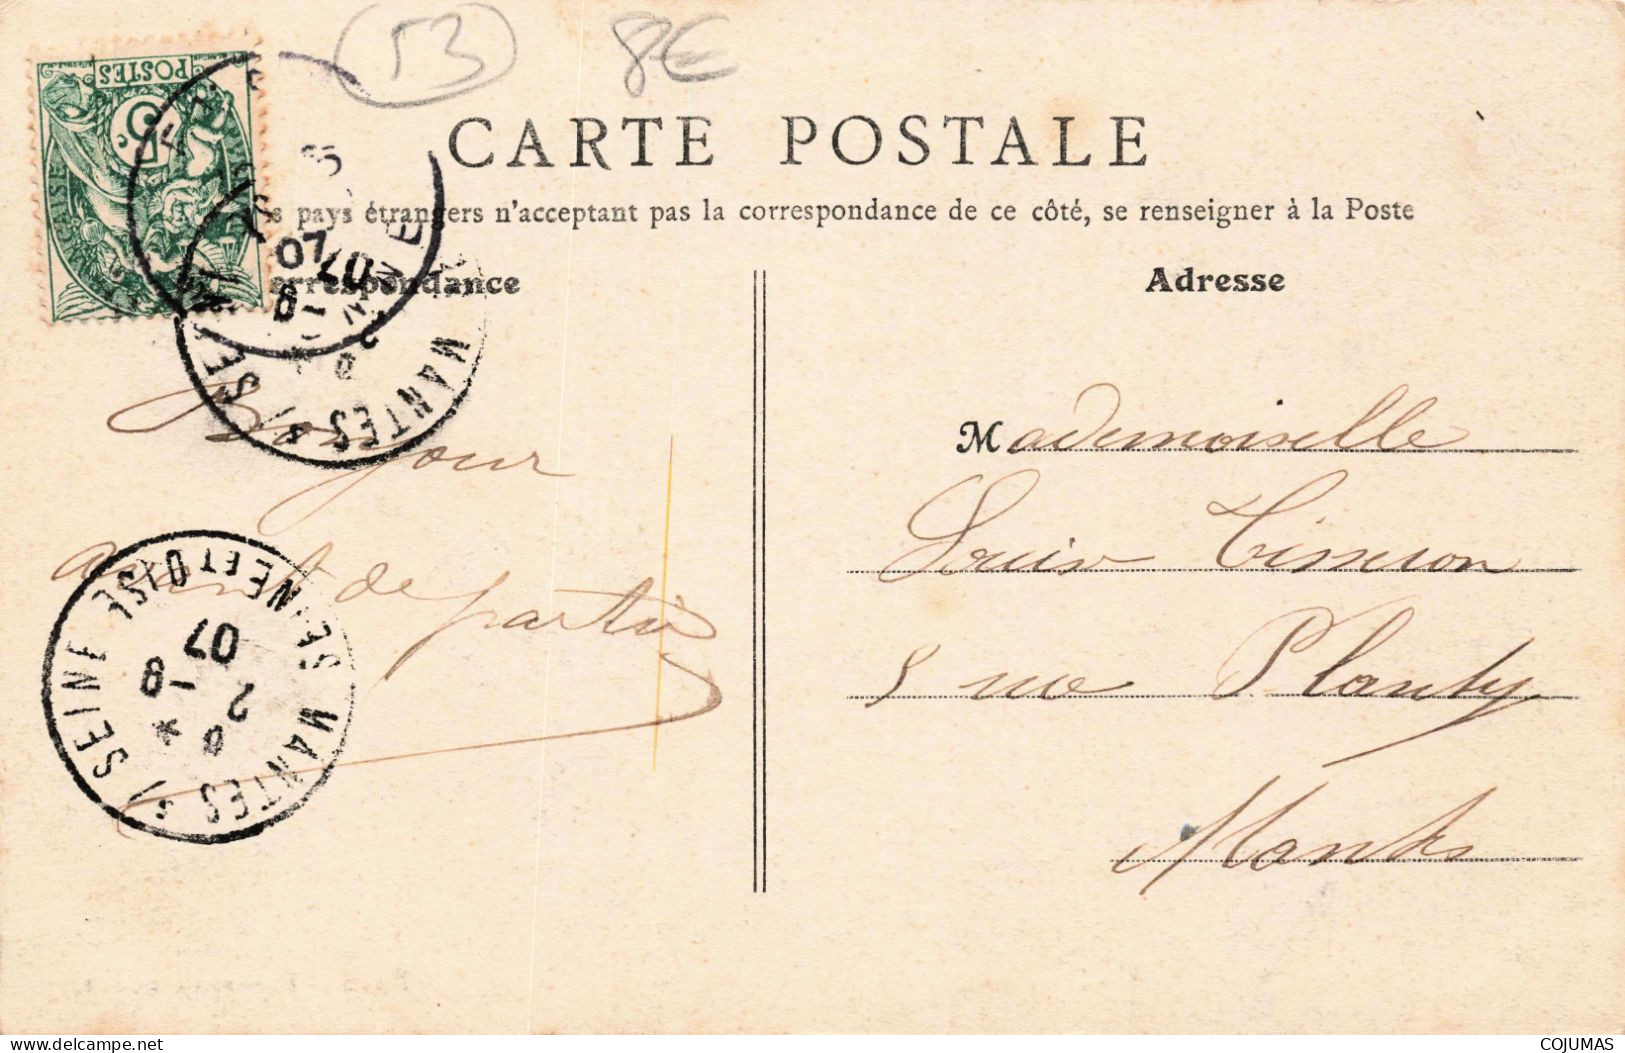 53
8€
POSTES
5c.
CARTE POSTALE
s pays étrangers n'acceptant pas la correspondance de ce côté, se renseigner à la Poste
Correspondance
Adresse
MANTES S/ SEINE
2 -8
07
07
Bonjour
avant de partir
MANTES S/ SEINE
SEINE ET OISE
2 -8
07
Mademoiselle
5 rue
Mantes
COJUMAS